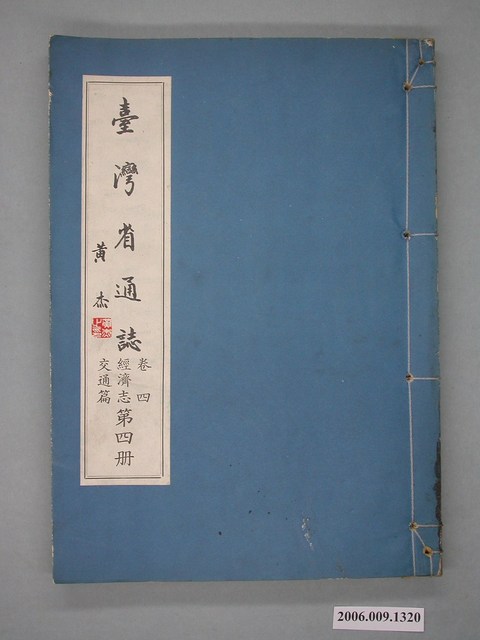 臺灣省通誌
卷四
經濟志
交通篇
第四册
黃杰
2006.009.1320